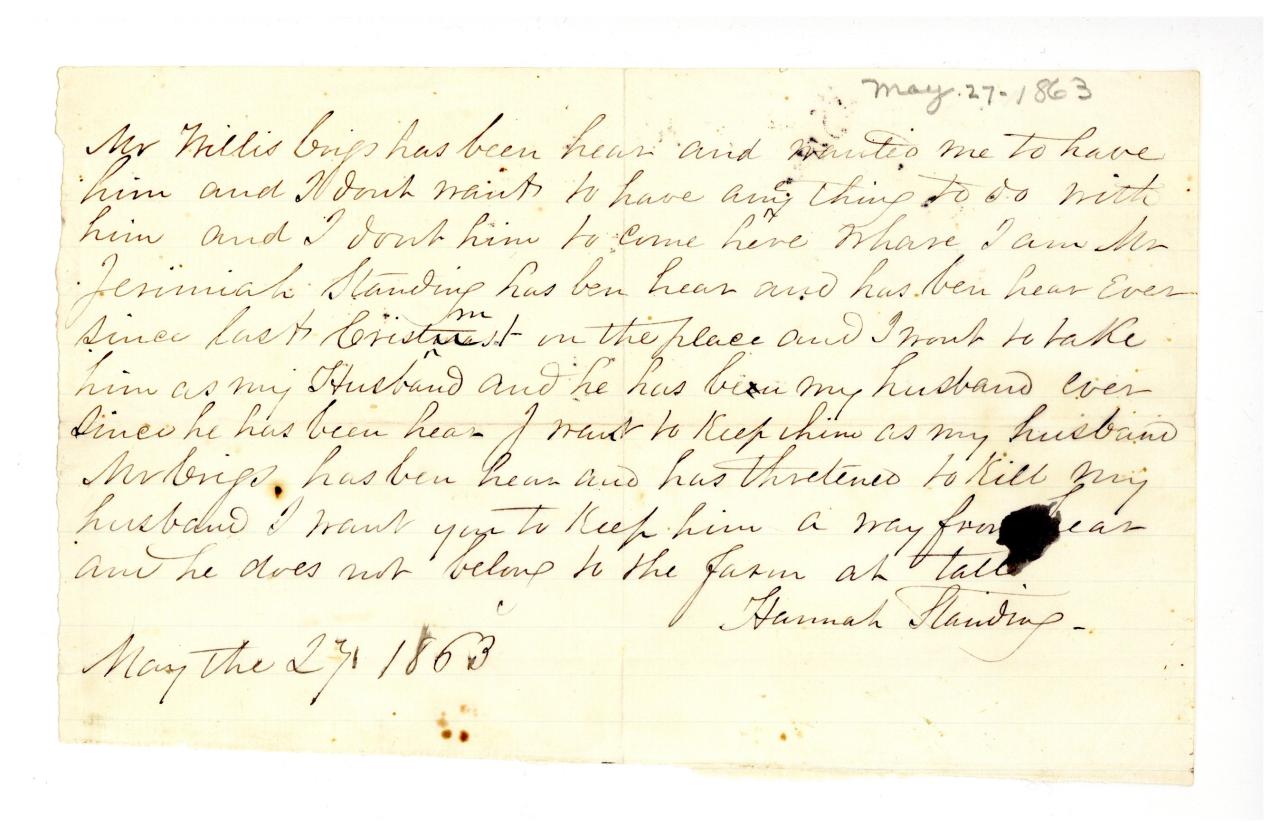 May. 27-1863
Mr Willis Crigs has been hear and wanted me to have
him and I dont want to have any thing to do with
him and I dont him to come here Whare I am Mr
Jerimiah Standing has ben hear and has ben hear Ever
since last on the place and I want to take
him as my Husband and he has been my husband ever
since he has been hear I want to Keep him as my husband
Mr Crigs has ben hear and has thretened to Kill my
husband I want you to Keep him a way from hear
and he does not belong to the farm at tall
Hannah Standing -
May the 27 1863